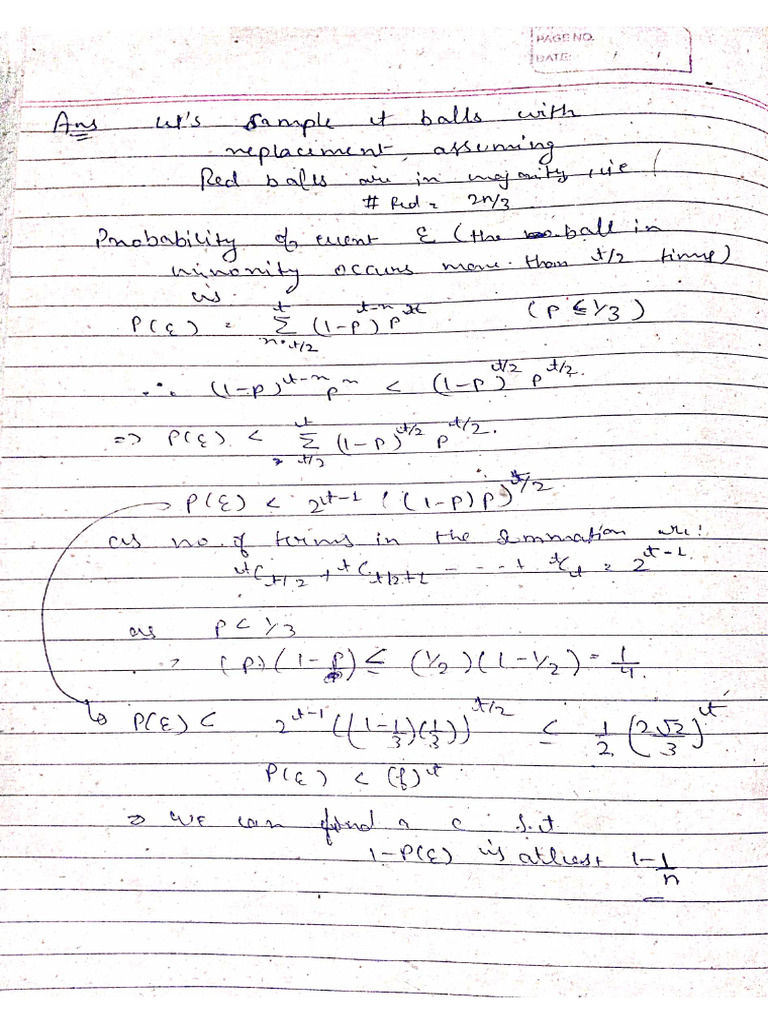 PAGE NO.
DATE: / /
Ans Let's sample t balls with
replacement, assuming
Red balls are in majority, i.e
# Red = 2n/3
Probability of event ε (the ball in
minority occurs more than t/2 times)
is.
P(ε) = Σ_{x=t/2}^{t} (1-p)^{t-x} p^x (p ≤ 1/3)
∴ (1-p)^{t-x} p^x < (1-p)^{t/2} p^{t/2}.
=> P(ε) < Σ_{t/2}^{t} (1-p)^{t/2} p^{t/2}.
P(ε) < 2^{t-1} ((1-p)p)^{t/2}
as no. of terms in the summation are:
tC_{t/2} + tC_{t/2+1} - - - - + tC_t = 2^{t-1}.
as p < 1/3
(p)(1-p) ≤ (1/2)(1-1/2) = 1/4.
P(ε) < 2^{t-1} ((1-1/3)(1/3))^{t/2} ≤ 1/2 (2√2/3)^t
P(ε) < (f)^t
=> we can find a c s.t
1-P(ε) is atleast 1-1/n